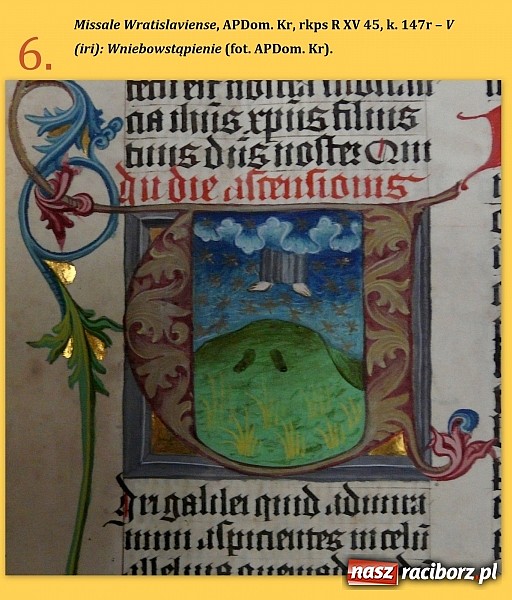 Missale Wratislaviense, APDom. Kr, rkps R XV 45, k. 147r – V
6. (iri): Wniebowstąpienie (fot. APDom. Kr).
cia ihūs xp̄us filius
tuus dn̄s noster Qui
In die ascensionis
V
iri galilei quid admira
mini aspicientes in celū
alleluia quemad
nasz raciborz.pl